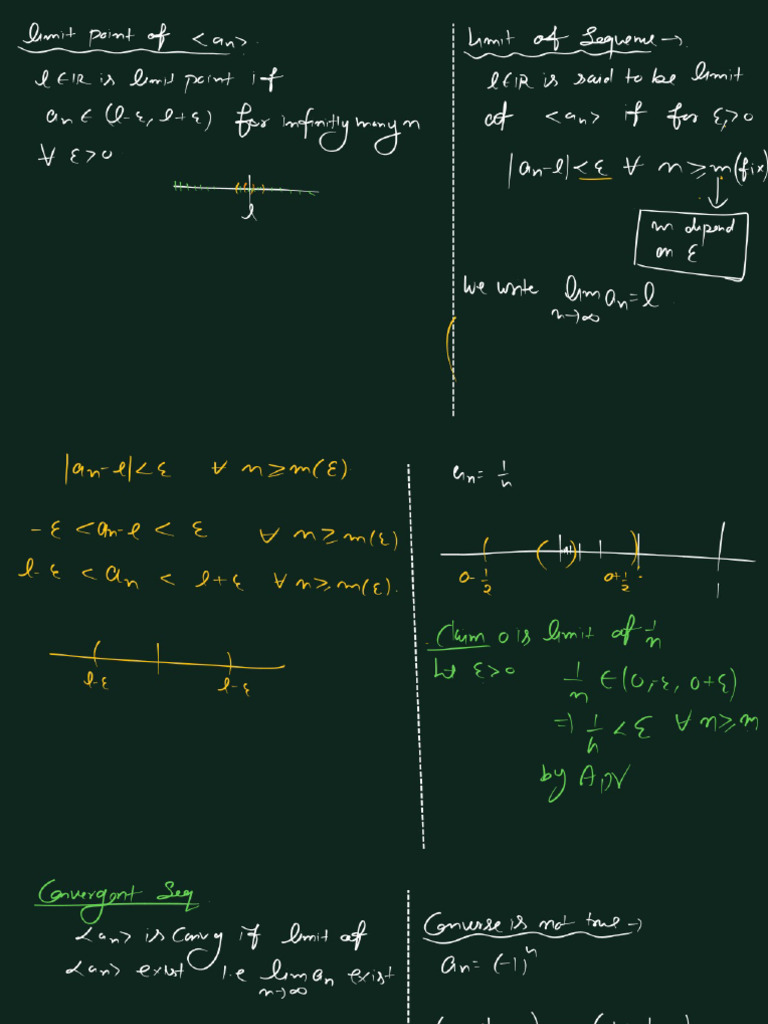 limit point of <an>.
l ∈ IR is limit point if
an ∈ (l-ε, l+ε) for infinitly many n
∀ ε>0
l
Limit of Sequence →
l ∈ IR is said to be limit
of <an> if for ε>0
|an-l|<ε ∀ n≥m(fix)
m depend
on ε
We write lim an = l
n→∞
|an-l|<ε ∀ n≥m(ε)
-ε < an-l < ε ∀ n≥m(ε)
l-ε < an < l+ε ∀ n≥m(ε).
l-ε l-ε
an = 1/n
0-1/2 0+1/2 1
Claim 0 is limit of 1/n
let ε>0 1/n ∈ (0-ε, 0+ε)
=) 1/n < ε ∀ n≥m
by A.P
Convergent Seq
<an> is Convg if limit of
<an> exist i.e lim an exist
n→∞
Converse is not true →
an = (-1)^n